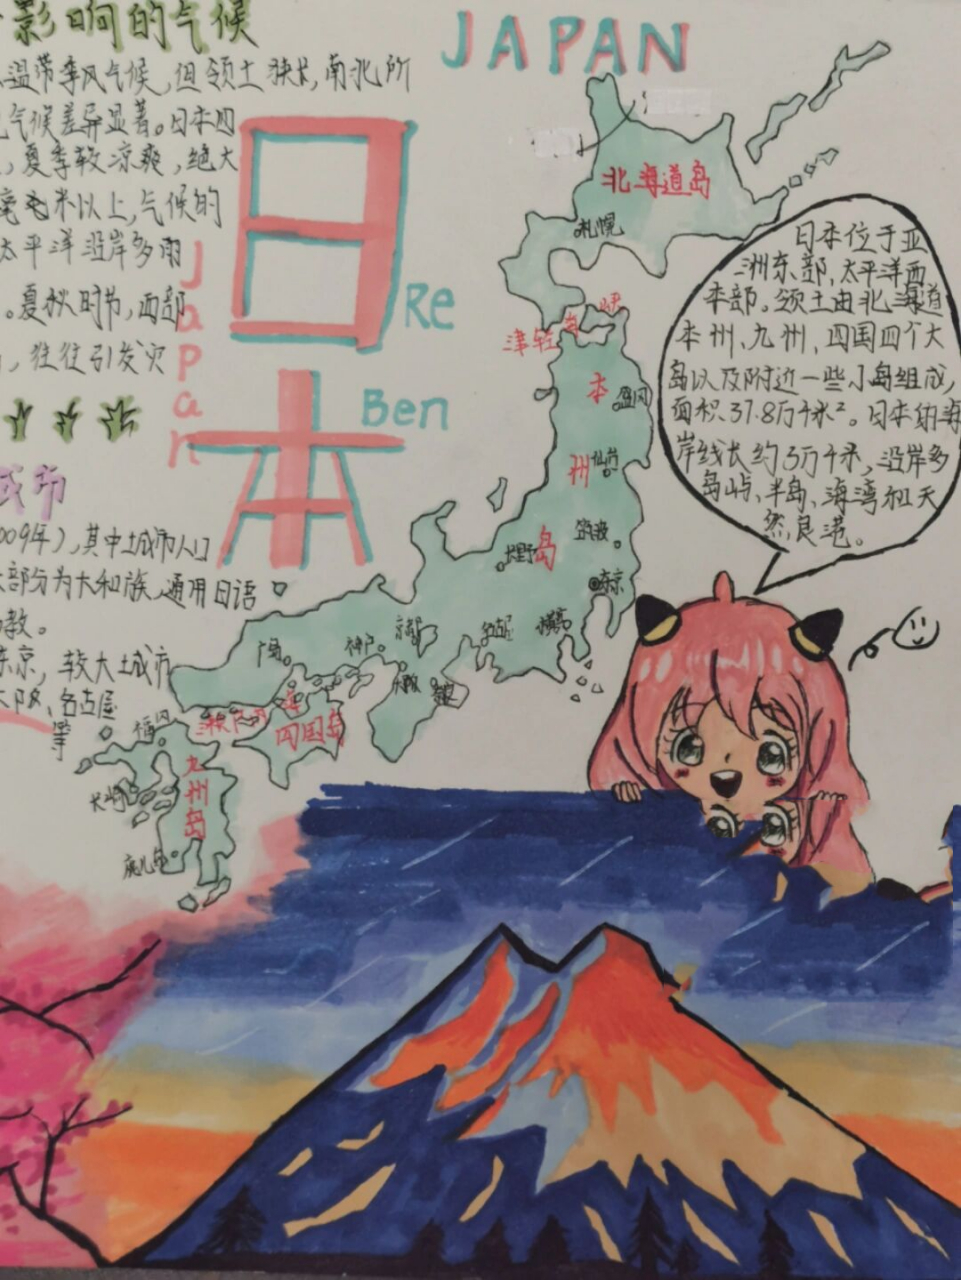 影响的气候
JAPAN
温带季风气候,但领土狭长,南北所
气候差异显著。日本四
,夏季较凉爽,绝大
毫米以上,气候的
太平洋沿岸多雨
。夏秋时节,西部
,往往引发灾
日
本
Re
Ben
Japan
城市
009年),其中城市人口
大部分为大和族,通用日语
教。
东京,较大城市
大阪、名古屋
等
北海道岛
札幌
津轻海峡
本
州
岛
盛冈
仙台
筑波
长野
东京
横滨
名古屋
京都
神户
大阪
广岛
四国岛
福冈
九州岛
长崎
鹿儿岛
日本位于亚
洲东部,太平洋西
本部。领土由北海道
本州、九州、四国四个大
岛以及附近一些小岛组成,
面积37.8万千米²。日本的海
岸线长约3万千米,沿岸多
岛屿、半岛、海湾和天
然良港。